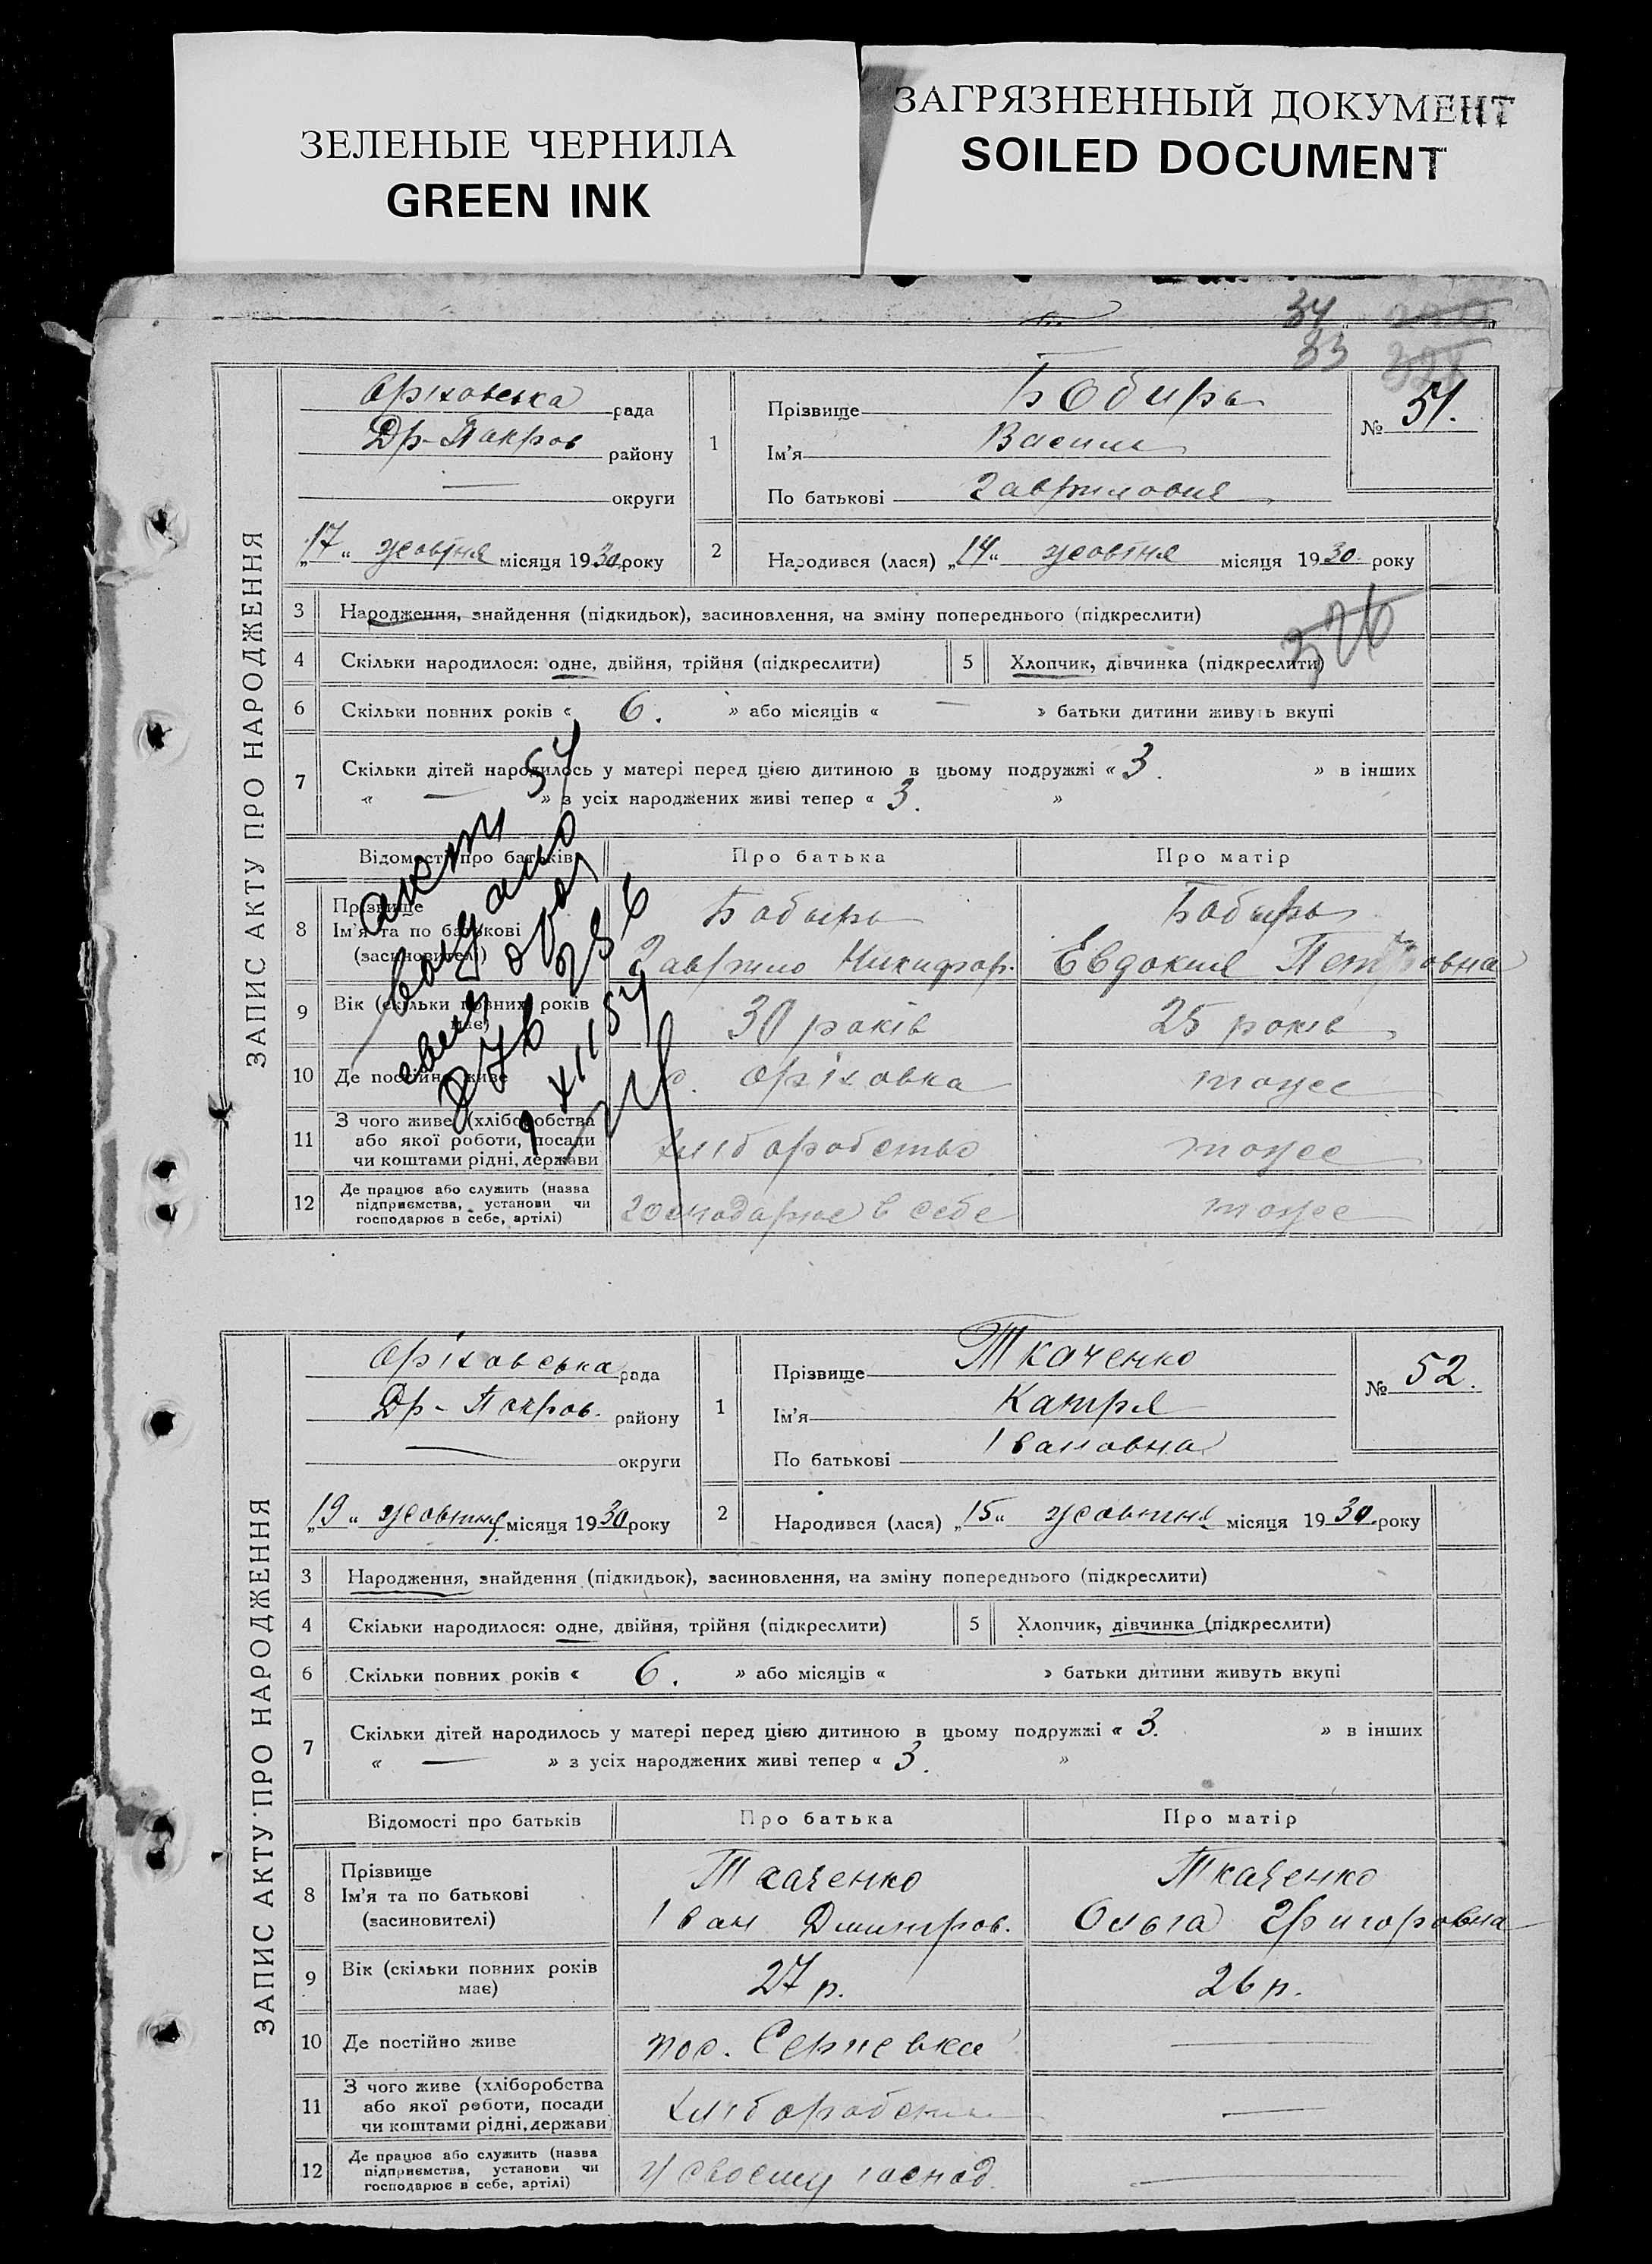 ЗЕЛЕНЫЕ ЧЕРНИЛА
GREEN INK
ЗАГРЯЗНЕННЫЙ ДОКУМЕНТ
SOILED DOCUMENT
34
33
ЗАПИС АКТУ ПРО НАРОДЖЕННЯ
Оріховська рада
Др-Покров району
— округи
„17“ жовтня місяця 1930 року
1 Прізвище Бобирь
Ім'я Василь
По батькові Гаврилович
№ 51.
2 Народився (лася) „14“ жовтня місяця 1930 року
3 Народження, знайдення (підкидьок), засиновлення, на зміну попереднього (підкреслити)
326
4 Скільки народилося: одне, двійня, трійня (підкреслити) 5 Хлопчик, дівчинка (підкреслити)
6 Скільки повних років « 6. » або місяців « — » батьки дитини живуть вкупі
7 Скільки дітей народилось у матері перед цією дитиною в цьому подружжі « 3. » в інших
« — » з усіх народжених живі тепер « 3. »
Відомості про батьків Про батька Про матір
8 Прізвище
Ім'я та по батькові
(засиновителі)
Бобирь
Гаврило Никифор.
Бобирь
Евдокия Петровна
9 Вік (скільки повних років має) 30 років 25 років
10 Де постійно живе с. Оріховка тоже
11 З чого живе (хліборобства
або якої роботи, посади
чи коштами рідні, держави
хліборобство тоже
12 Де працює або служить (назва
підприємства, установи чи
господарює в себе, артілі)
господарює в себе тоже
ЗАПИС АКТУ ПРО НАРОДЖЕННЯ
Оріховська рада
Др-Покров. району
— округи
„19“ жовтня місяця 1930 року
1 Прізвище Ткаченко
Ім'я Катря
По батькові Івановна
№ 52.
2 Народився (лася) „15“ жовтня місяця 1930. року
3 Народження, знайдення (підкидьок), засиновлення, на зміну попереднього (підкреслити)
4 Скільки народилося: одне, двійня, трійня (підкреслити) 5 Хлопчик, дівчинка (підкреслити)
6 Скільки повних років « 6. » або місяців « » батьки дитини живуть вкупі
7 Скільки дітей народилось у матері перед цією дитиною в цьому подружжі « 3. » в інших
« — » з усіх народжених живі тепер « 3. »
Відомості про батьків Про батька Про матір
8 Прізвище
Ім'я та по батькові
(засиновителі)
Ткаченко
Іван Дмитров.
Ткаченко
Ольга Григоровна
9 Вік (скільки повних років має) 27 р. 26 р.
10 Де постійно живе пос. —
11 З чого живе (хліборобства
або якої роботи, посади
чи коштами рідні, держави
хліборобство —
12 Де працює або служить (назва
підприємства, установи чи
господарює в себе, артілі)
у своєму господ. —